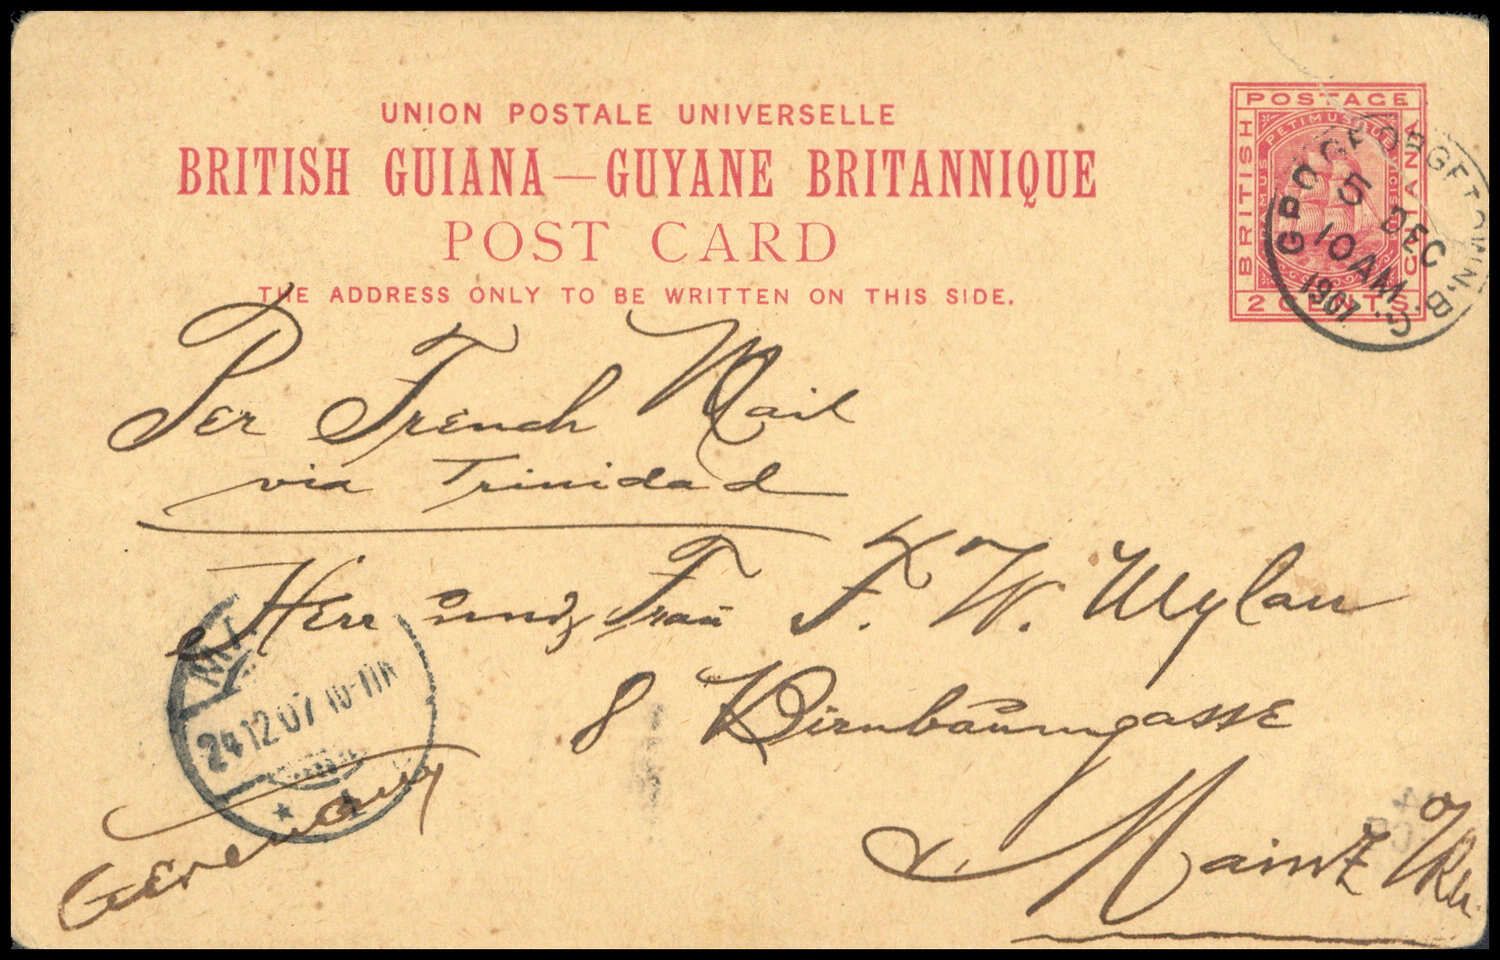 UNION POSTALE UNIVERSELLE
BRITISH GUIANA — GUYANE BRITANNIQUE
POST CARD
THE ADDRESS ONLY TO BE WRITTEN ON THIS SIDE.
POSTAGE
BRITISH GUIANA
2 CENTS
G.P.O. GEORGETOWN, B.G.
5 DEC
10 AM
1907
Per French Mail
via Trinidad
Herr und Frau F. W. Uhlau
8 Birnbaumgasse
Mainz
Germany
24.12.07